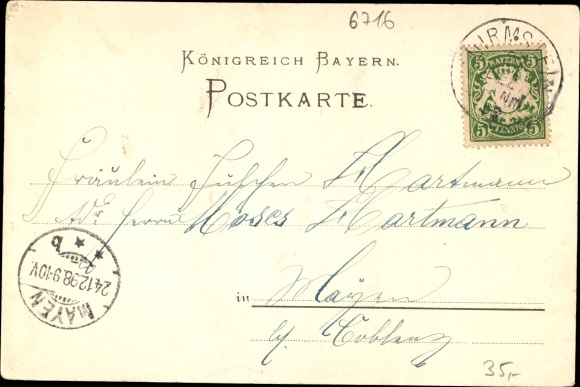 6716
KÖNIGREICH BAYERN.
POSTKARTE.
5 BAYERN 5
5 PFENNIG 5
Fräulein Hartmann
Adr Herrn Moses Hartmann
in Mayen
b/ Coblenz
MAYEN
24.12.98.9-10V.
* * b
35,-